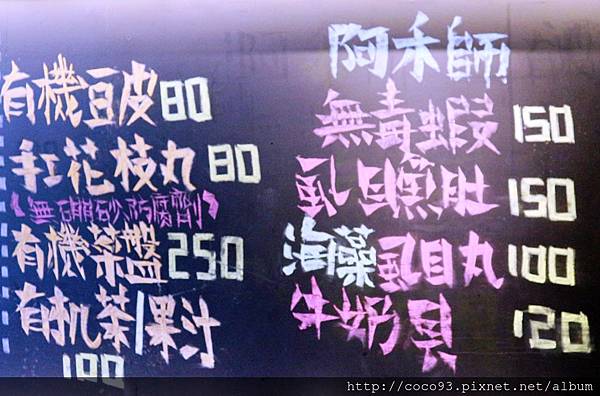 有機豆皮80
手工花枝丸80
《無硼砂.防腐劑》
有機菜盤250
有机茶/果汁
100
阿禾師
無毒蝦150
虱目魚肚150
海藻虱目丸100
牛奶貝120
http://coco93.pixnet.net/album